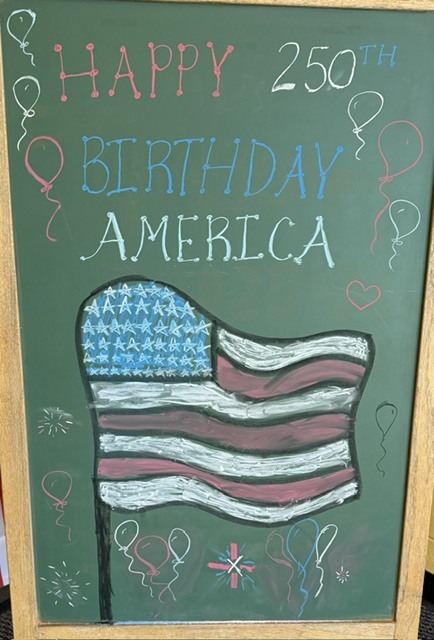 HAPPY 250TH
BIRTHDAY
AMERICA